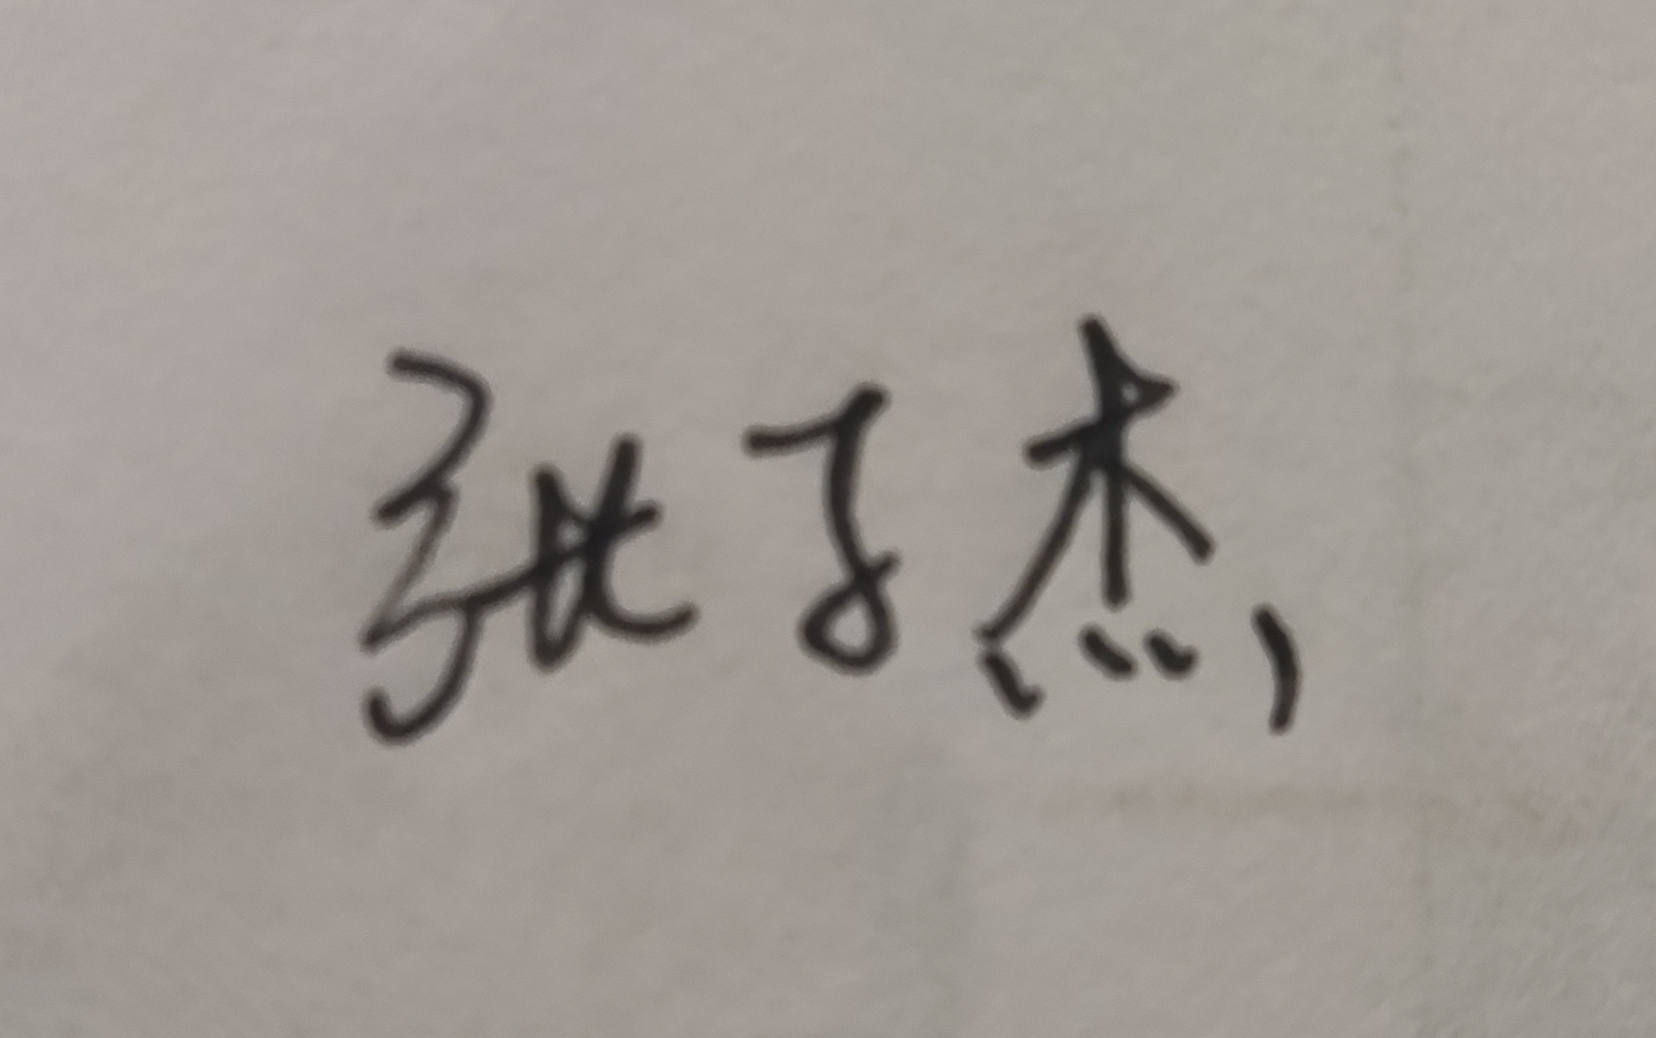 张子杰